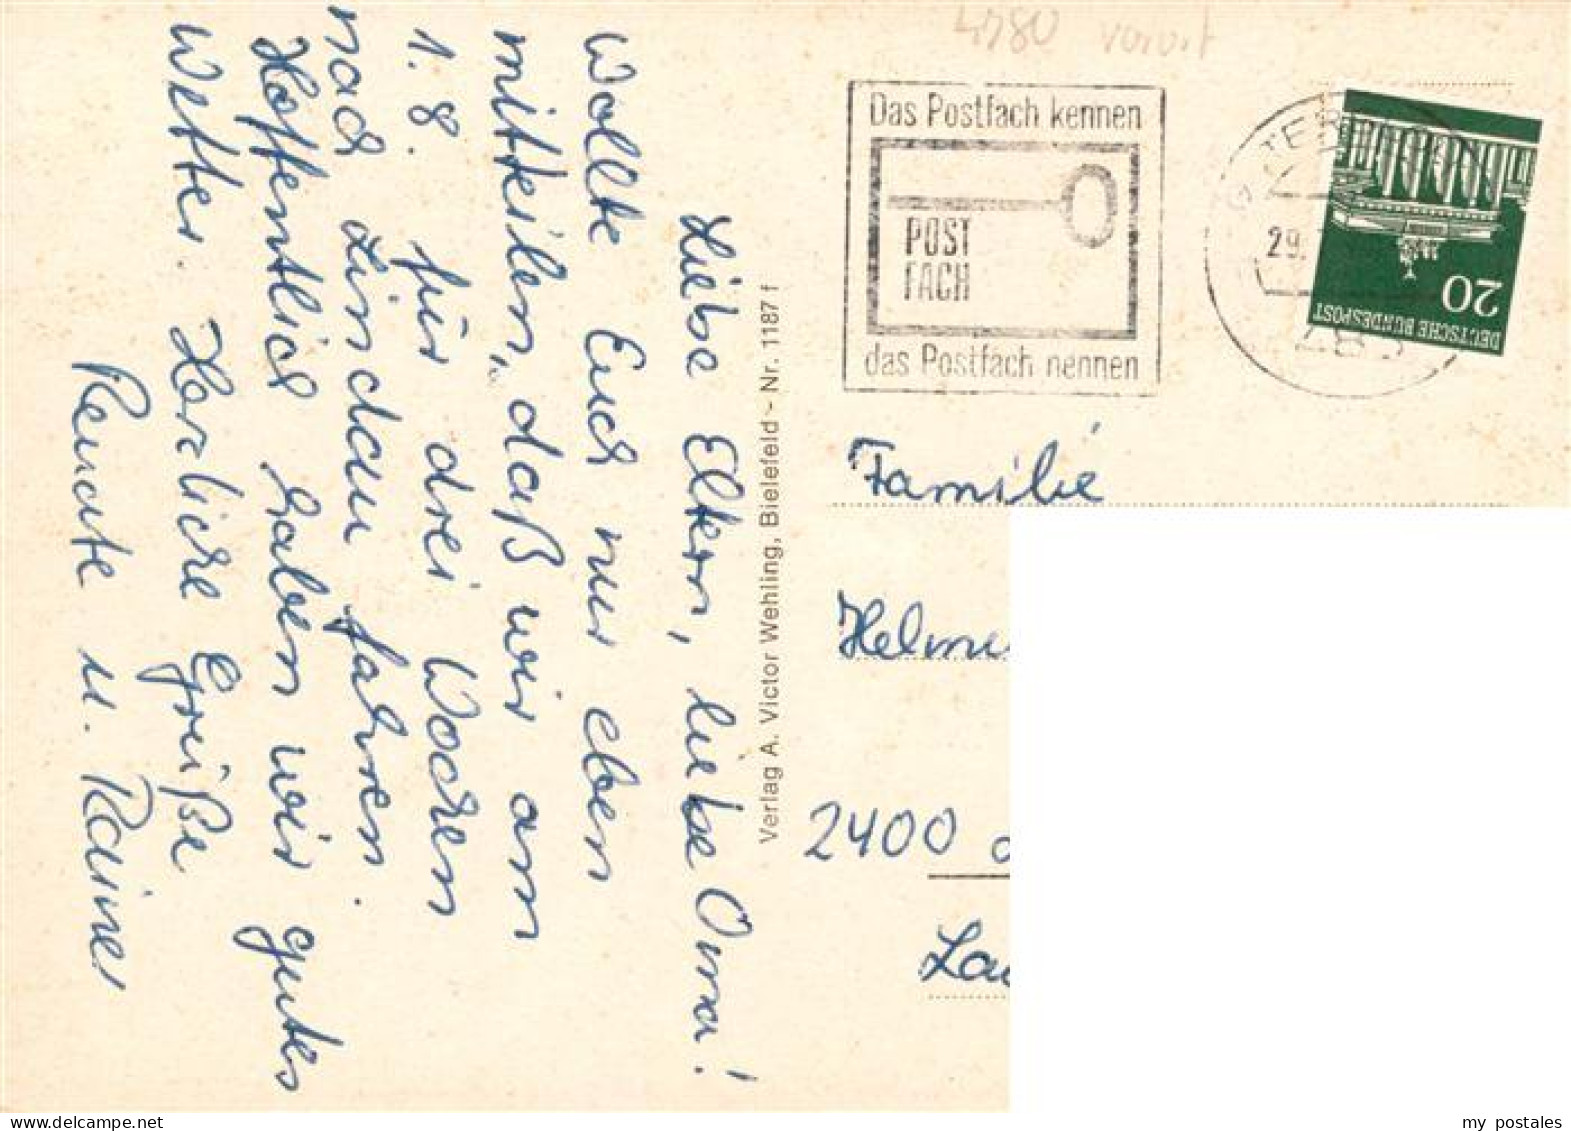 Liebe Eltern, liebe Oma!
Wollte Euch nur eben
mitteilen, daß wir am
1.8. für drei Wochen
nach Lindau fahren.
Hoffentlich haben wir gutes
Wetter. Herzliche Grüße
Renate u. Rainer
Verlag A. Victor Wehling, Bielefeld - Nr. 1187 f
4780
Das Postfach kennen
POST
FACH
das Postfach nennen
29.
20
DEUTSCHE BUNDESPOST
Familie
2400
my postales